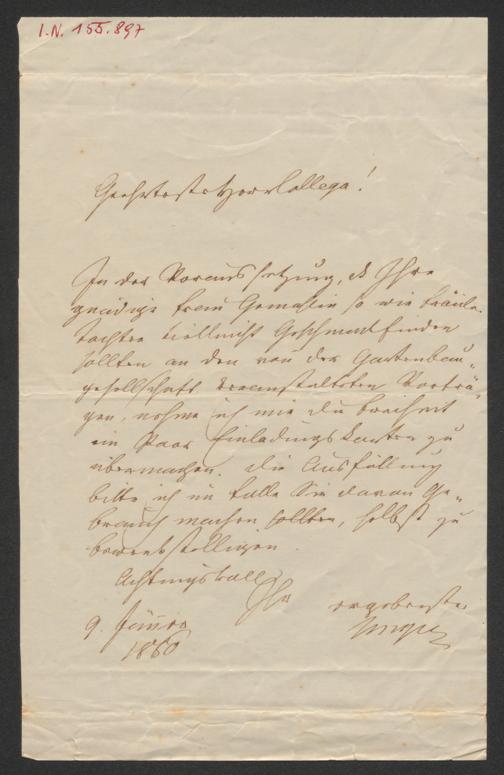 I.N. 155.897
Geehrtester Herr Collega!
In der Voraussetzung, daß Ihre
gnädige Frau Gemahlin so wie Fräule
Tochter vielleicht Geschmack finden
sollten an den von der Gartenbau-
gesellschaft veranstalteten Vorträ-
gen, nehme ich mir die Freiheit
ein Paar Einladungskarten zu
übermachen. Die Ausfüllung
bitte ich im Falle Sie davon Ge-
brauch machen sollten, selbst zu
bewerkstelligen
Achtungsvoll
Ihr ergebenster
9. Jänner
1860